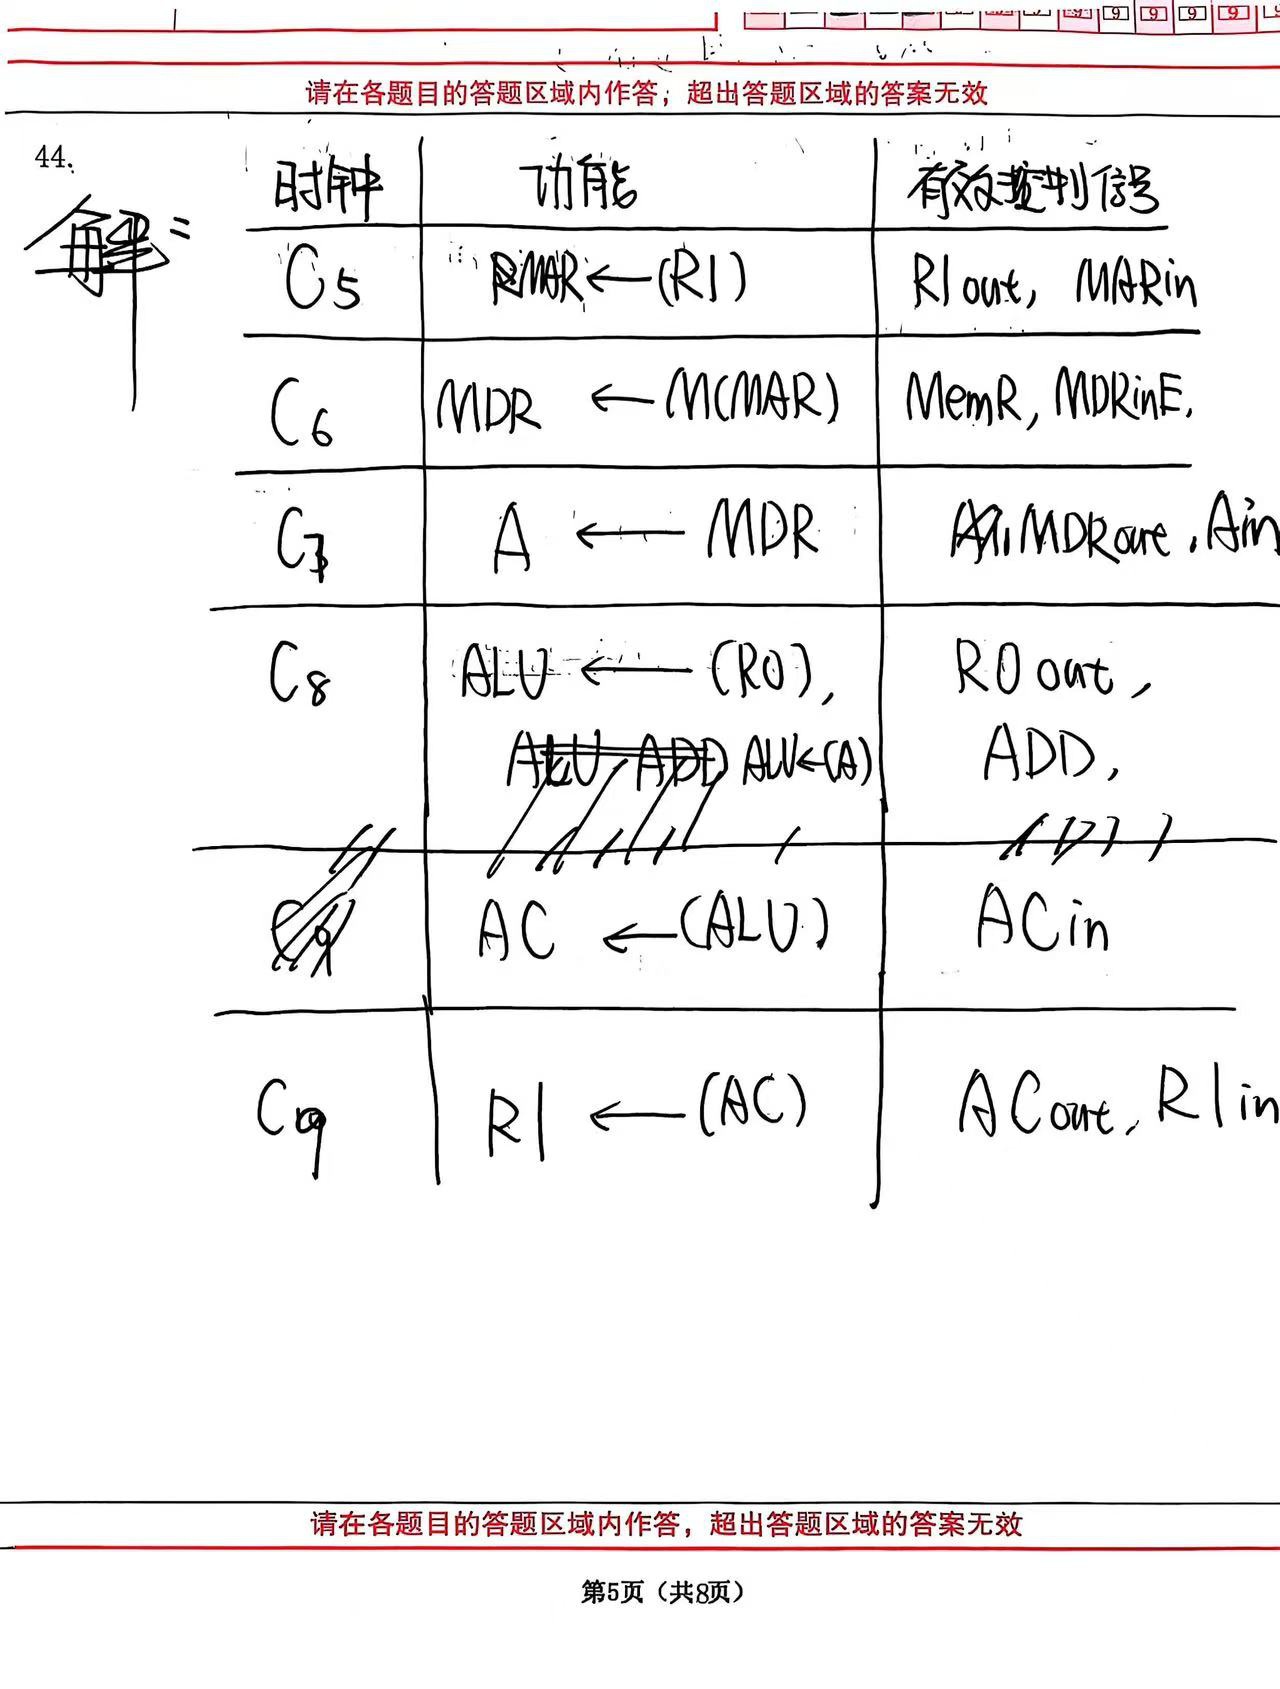 9 9 9 9 9
请在各题目的答题区域内作答，超出答题区域的答案无效
44.
解: 时钟 功能 有效控制信号
C5 MAR←(R1) R1out, MARin
C6 MDR ← M(MAR) MemR, MDRinE,
C7 A ← MDR MDRout, Ain
C8 ALU ← (R0), R0out,
ALU ADD ALU←(A) ADD,
C9 AC ← (ALU) ACin
C9 R1 ← (AC) ACout, R1in
请在各题目的答题区域内作答，超出答题区域的答案无效
第5页（共8页）